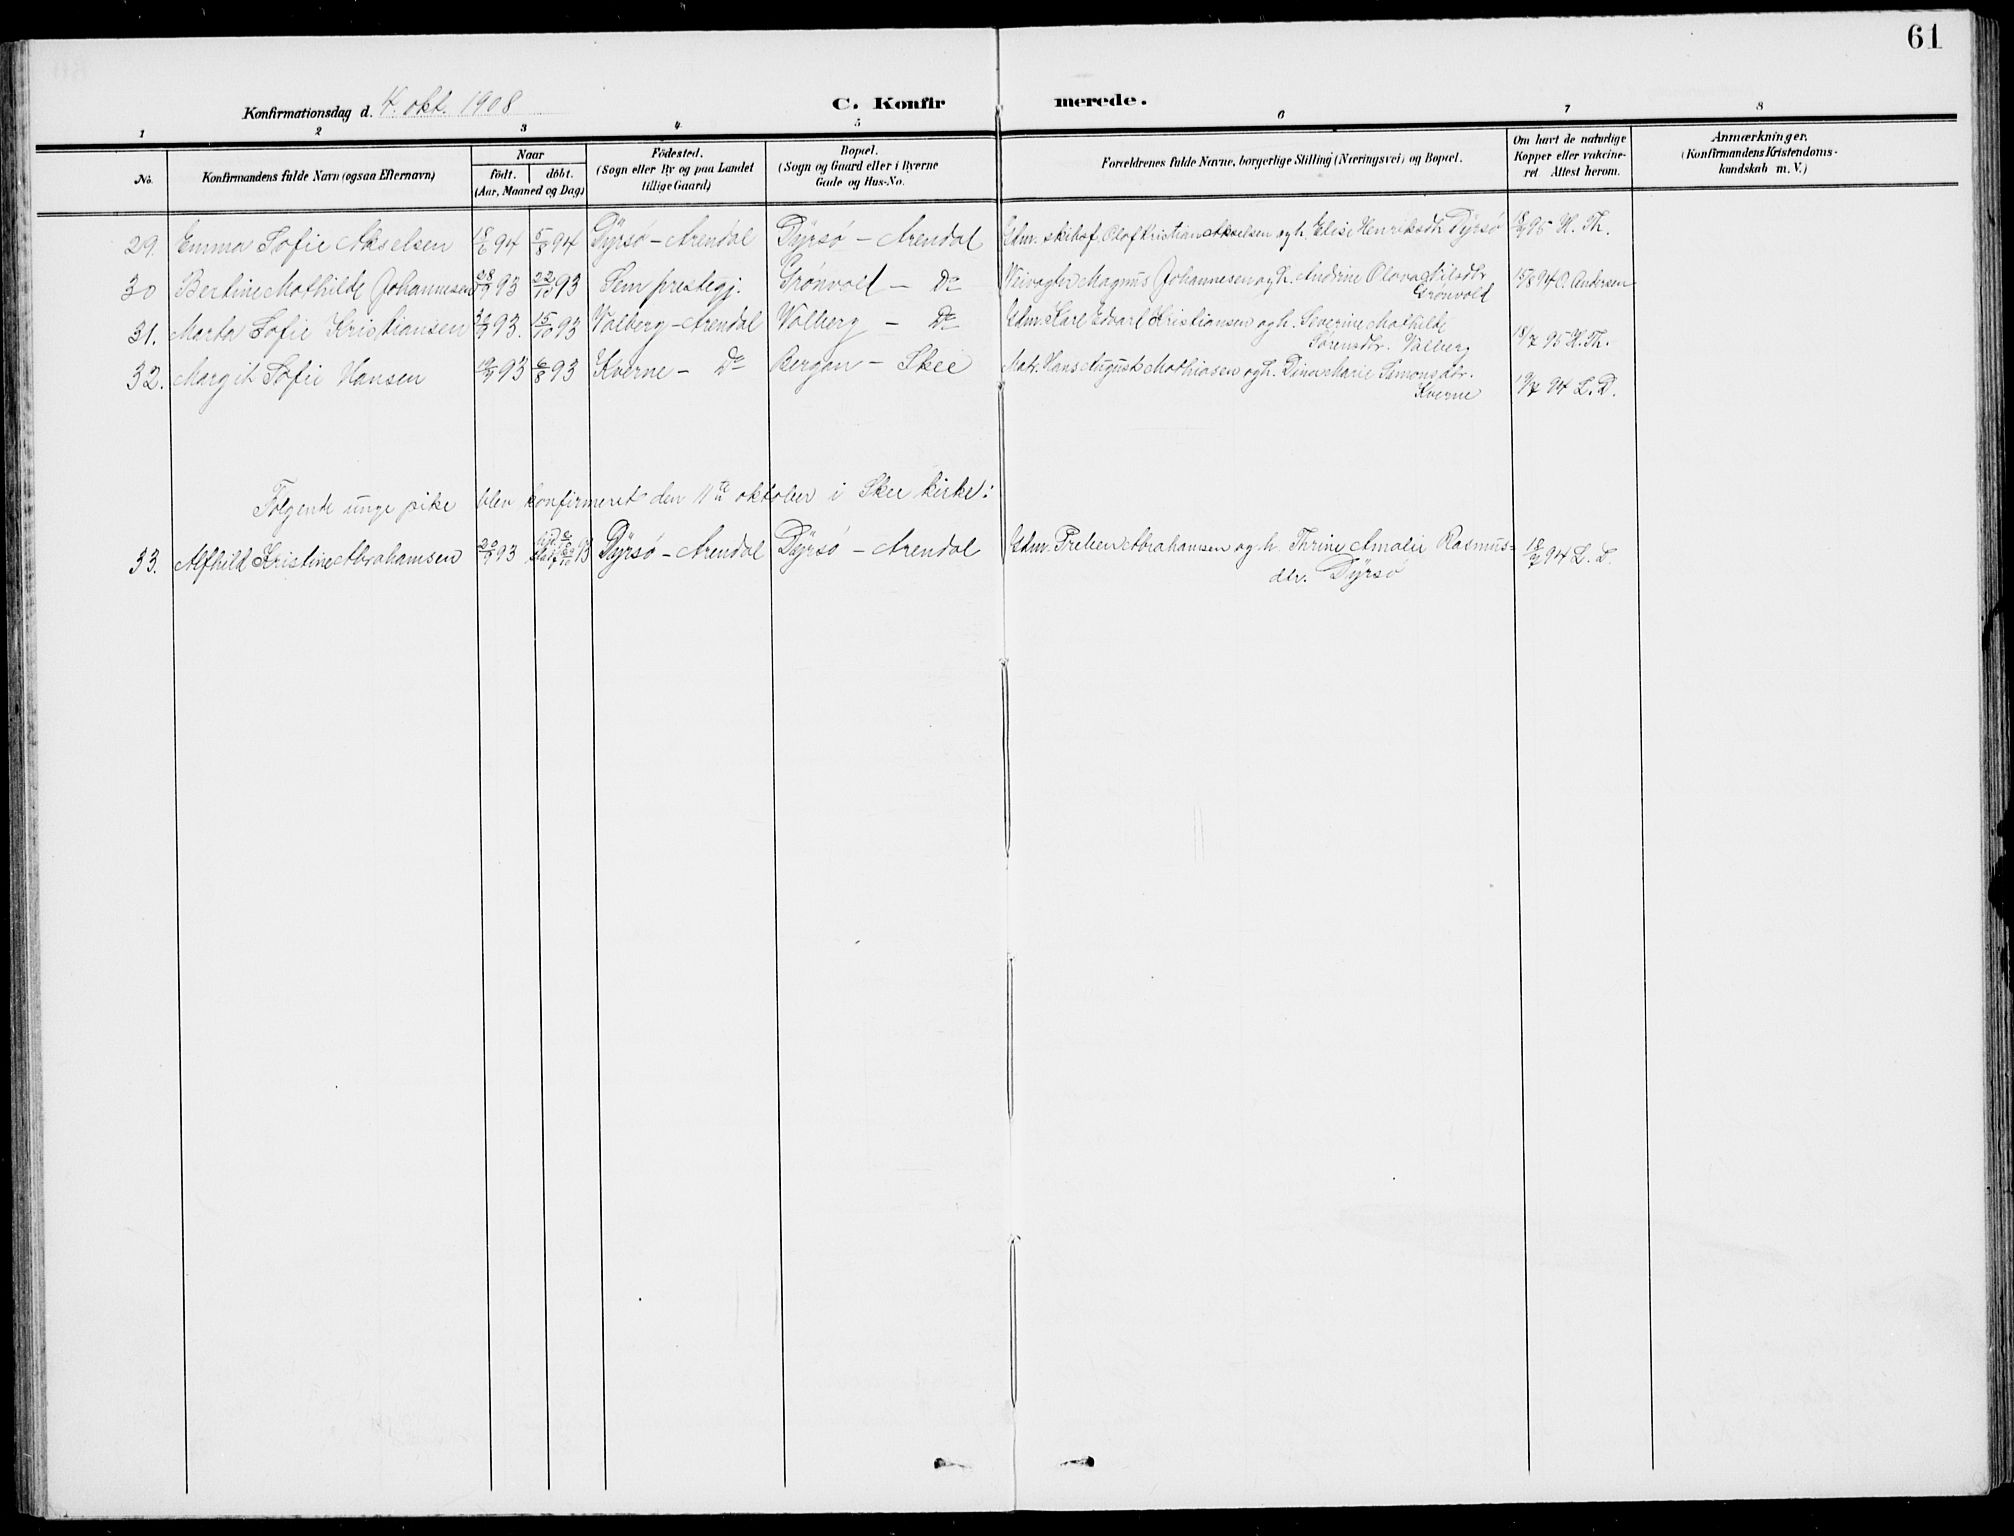 61
Konfirmationsdag d. 4. okt. 1908
C. Konfirmerede.
1 2 3 4 5 6 7 8
No.
Konfirmandens fulde Navn (ogsaa Efternavn)
Naar
födt. döbt.
(Aar, Maaned og Dag)
Födested.
(Sogn eller By og paa Landet
tillige Gaard)
Bopæl.
(Sogn og Gaard eller i Byerne
Gade og Hus-No.
Forældrenes fulde Navne, borgerlige Stilling (Næringsvei) og Bopæl.
Om havt de naturlige
Kopper eller vakcine-
ret Attest herom.
Anmærkninger.
(Konfirmandens Kristendoms-
kundskab m. V.)
29. Emma Sofie Akselsen 94 5/8 94 Dyrsø - Arendal Dyrsø - Arendal Olaf Kristian Akselsen og h. Elise Henriksdtr. Dyrsø 95 H. Th.
30 Bertine Mathilde Johannesen 93 22/10 93 Sem prestegj. Grønvold - Do Magnus Johannesen og h. Andrine Olava Nilsdtr. 94 O. Andersen
Grønvold
31. Marta Sofie Kristiansen 93. 15/10 93 Valberg - Arendal Valberg - Do Karl Edvart Kristiansen og h. Severine Mathilde
Sørensdtr. Valberg 95 H. Th.
32. Margit Sofie Hansen 93 6/8 93 Kverne - Do Bergan - Skee Matr. Hans August Mathiasen og h. Dina Marie Simonsdtr.
Kverne 94 L. D.
Følgende unge pike blev konfirmeret den 11te oktober i Skee kirke:
33. Alfhild Kristine Abrahamsen 93 93 Dyrsø - Arendal Dyrsø - Arendal Preben Abrahamsen og h. Thrine Amalie Rasmus-
dtr. Dyrsø 94 L. D.